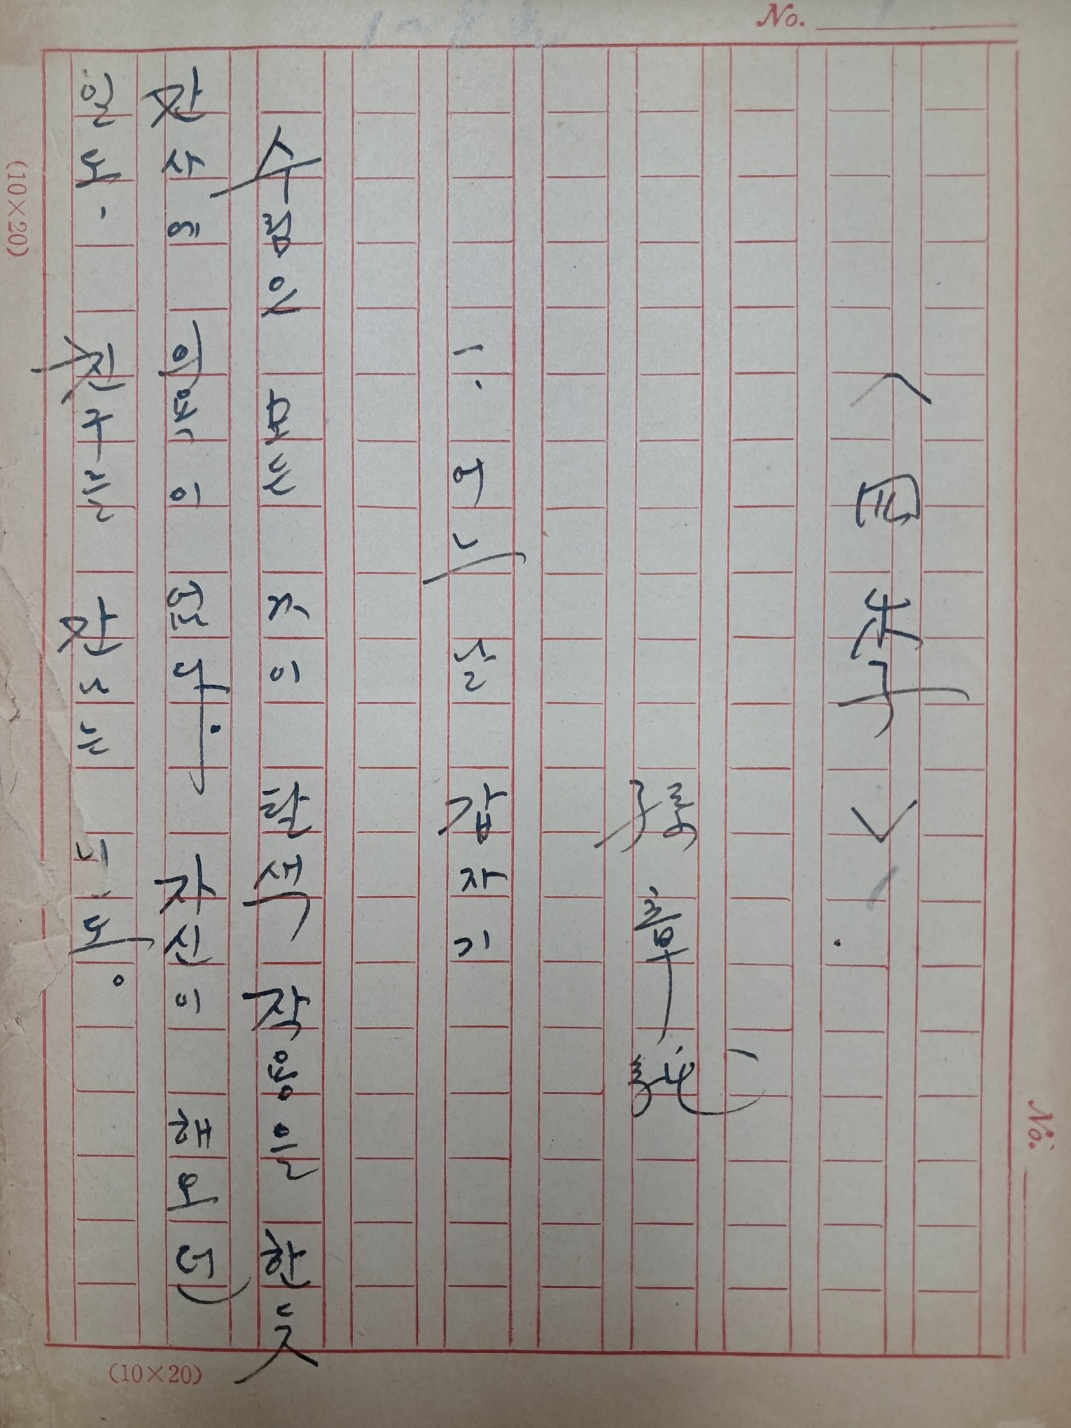 No.
No.
〈四季〉
孫章純
1. 어느 날 갑자기
모든 것이 탈색 작용을 한 듯
만사에 의욕이 없다. 자신이 해오던
일도, 친구를 만나는 일도.
(10×20)
(10×20)